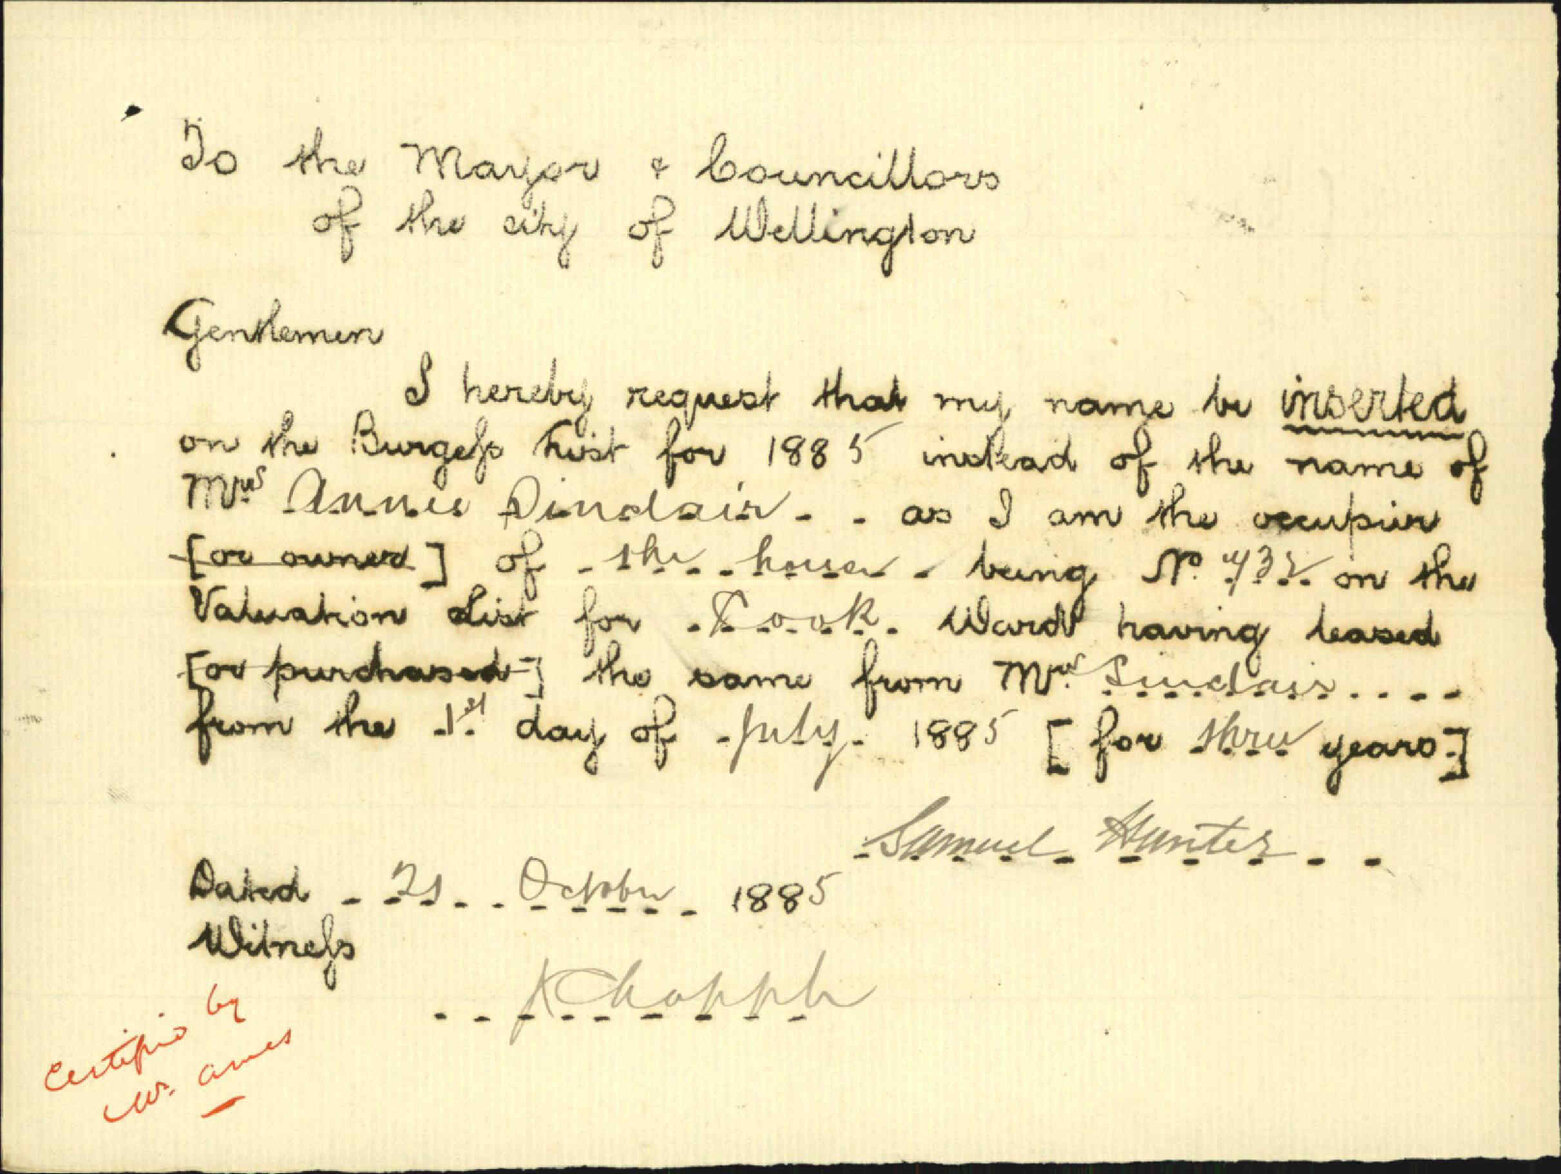 To the Mayor & Councillors
of the city of Wellington
Gentlemen
I hereby request that my name be inserted
on the Burgess List for 1885 instead of the name of
Mrs Annie Sinclair as I am the occupier
[or owner] of the house being No. 732 on the
Valuation List for Cook Ward having leased
[or purchased] the same from Mrs Sinclair
from the 1st day of July 1885 [for three years]
Samuel Hunter
Dated 21 October 1885
Witness
Certified by
Mr. Ames